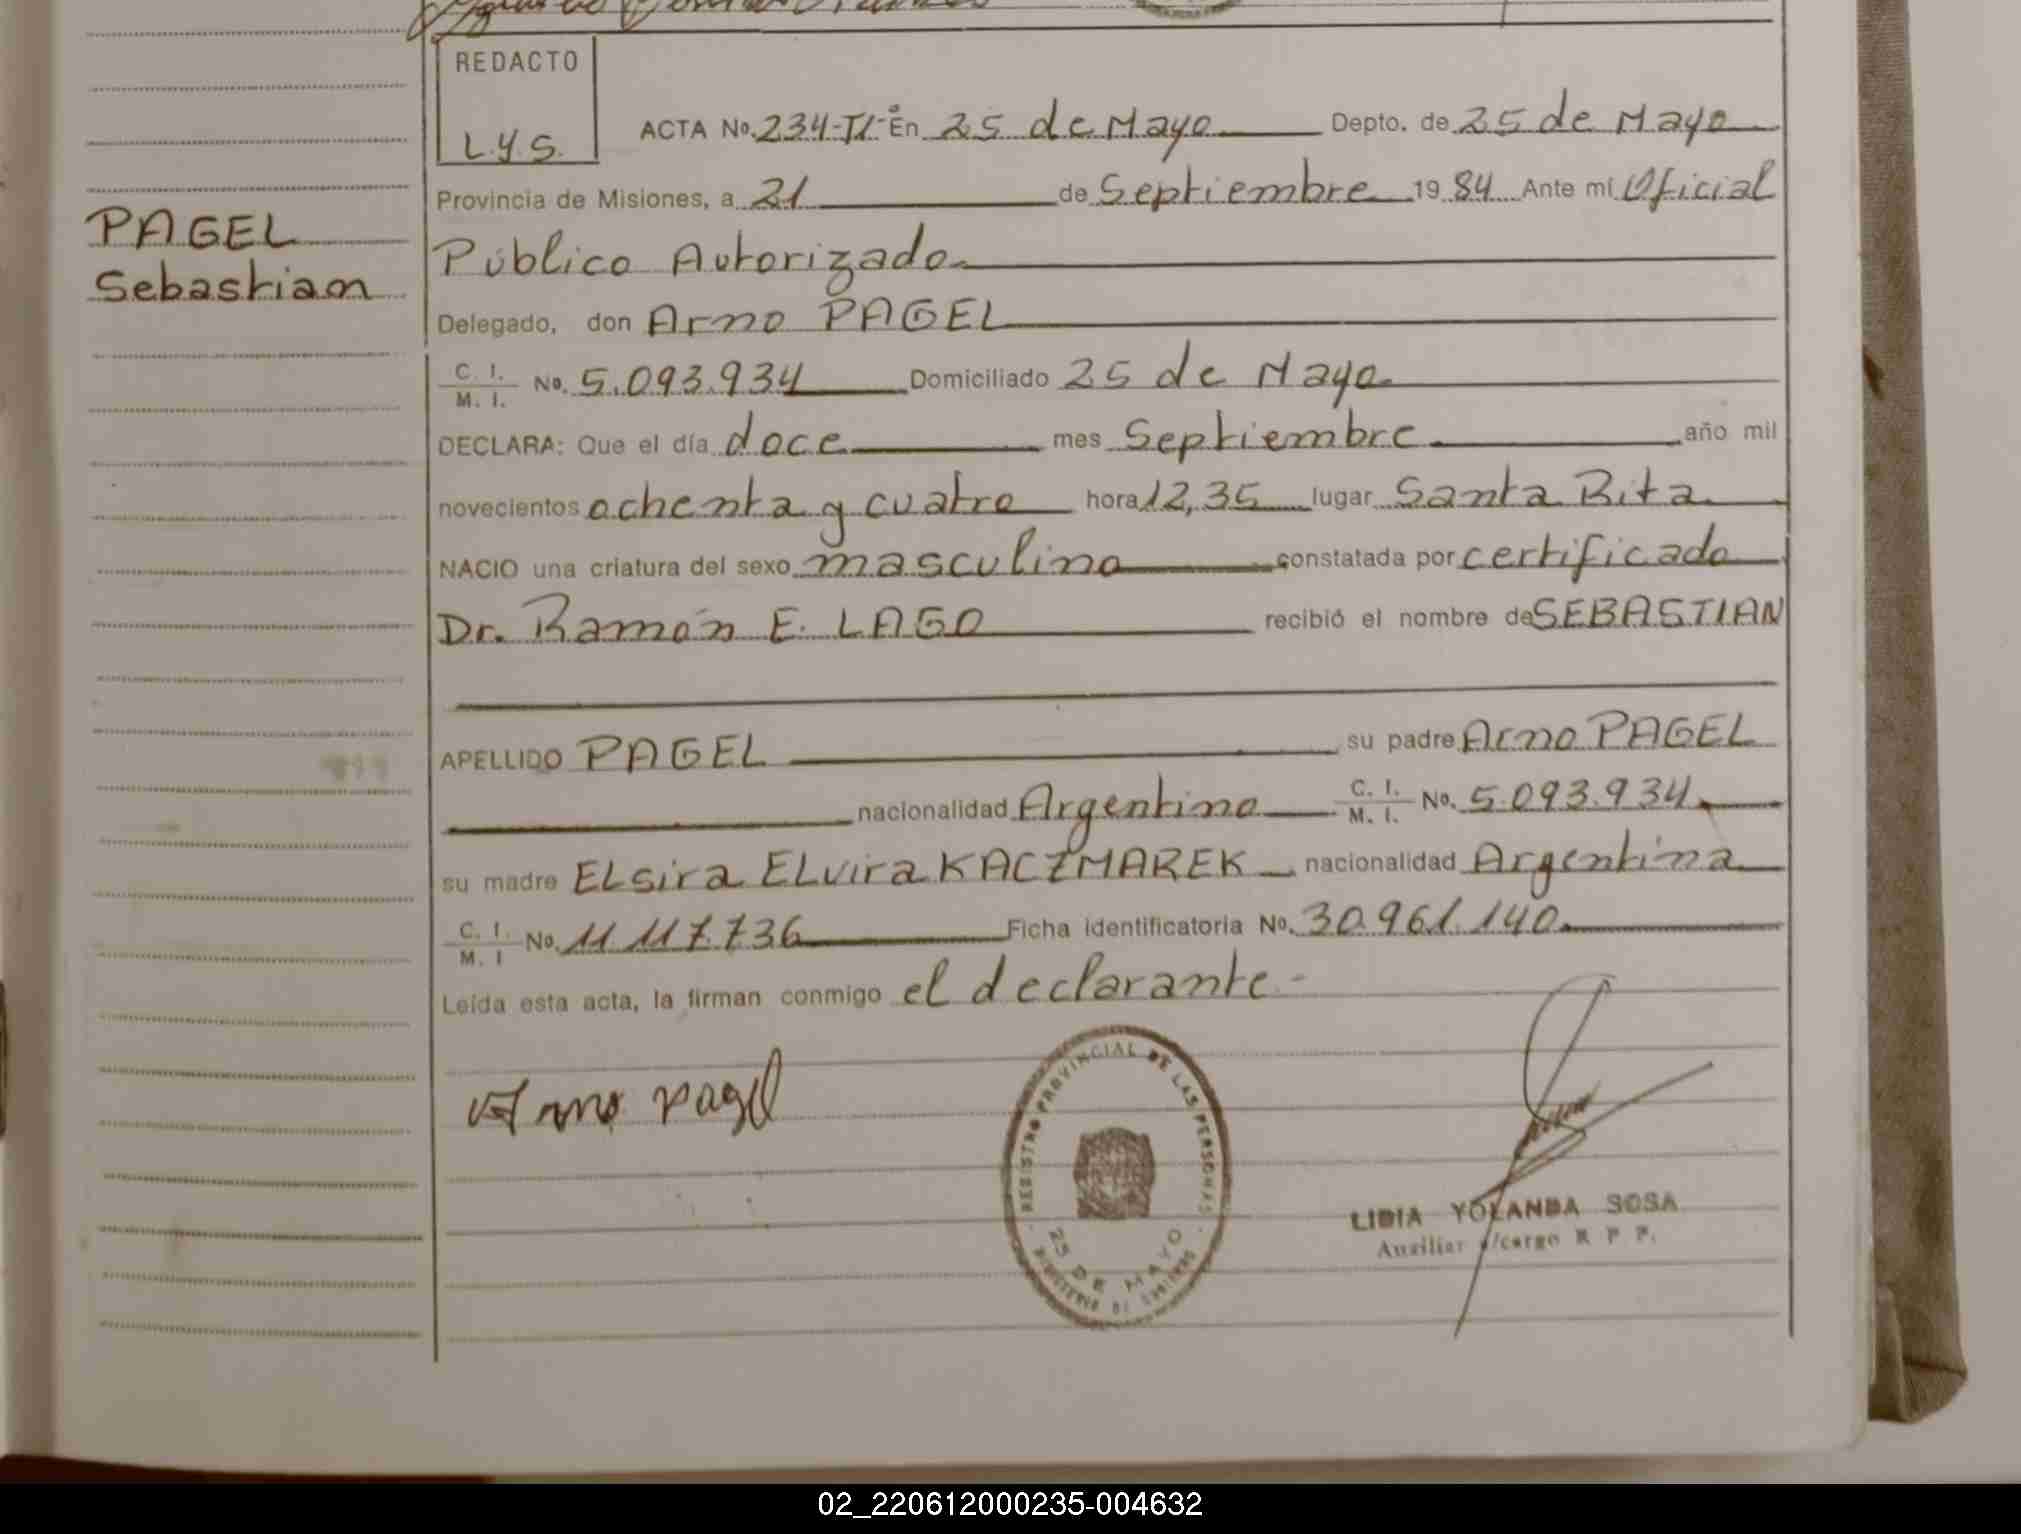 REDACTO
L.Y.S.
ACTA No. 234-TI-En 25 de Mayo Depto. de 25 de Mayo
Provincia de Misiones, a 21 de Septiembre 19 84 Ante mí Oficial
PAGEL
Sebastian
Público Autorizado
Delegado, don Arno PAGEL
C. I.
M. I. No. 5.093.934 Domiciliado 25 de Mayo
DECLARA: Que el día doce mes Septiembre año mil
novecientos ochenta y cuatro hora 12,35 lugar Santa Rita
NACIO una criatura del sexo masculino constatada por certificado
Dr. Ramón E. LAGO recibió el nombre de SEBASTIAN
APELLIDO PAGEL su padre Arno PAGEL
nacionalidad Argentino C. I.
M. I. No. 5.093.934
su madre ELsira ELvira KACZMAREK nacionalidad Argentina
C. I.
M. I No. 11.117.736 Ficha identificatoria No. 30.961.140
Leída esta acta, la firman conmigo el declarante-
Arno Pagel
REGISTRO PROVINCIAL DE LAS PERSONAS
25 DE MAYO
MINISTERIO DE GOBIERNO
LIDIA YOLANDA SOSA
Auxiliar a/cargo R P P.
02_220612000235-004632